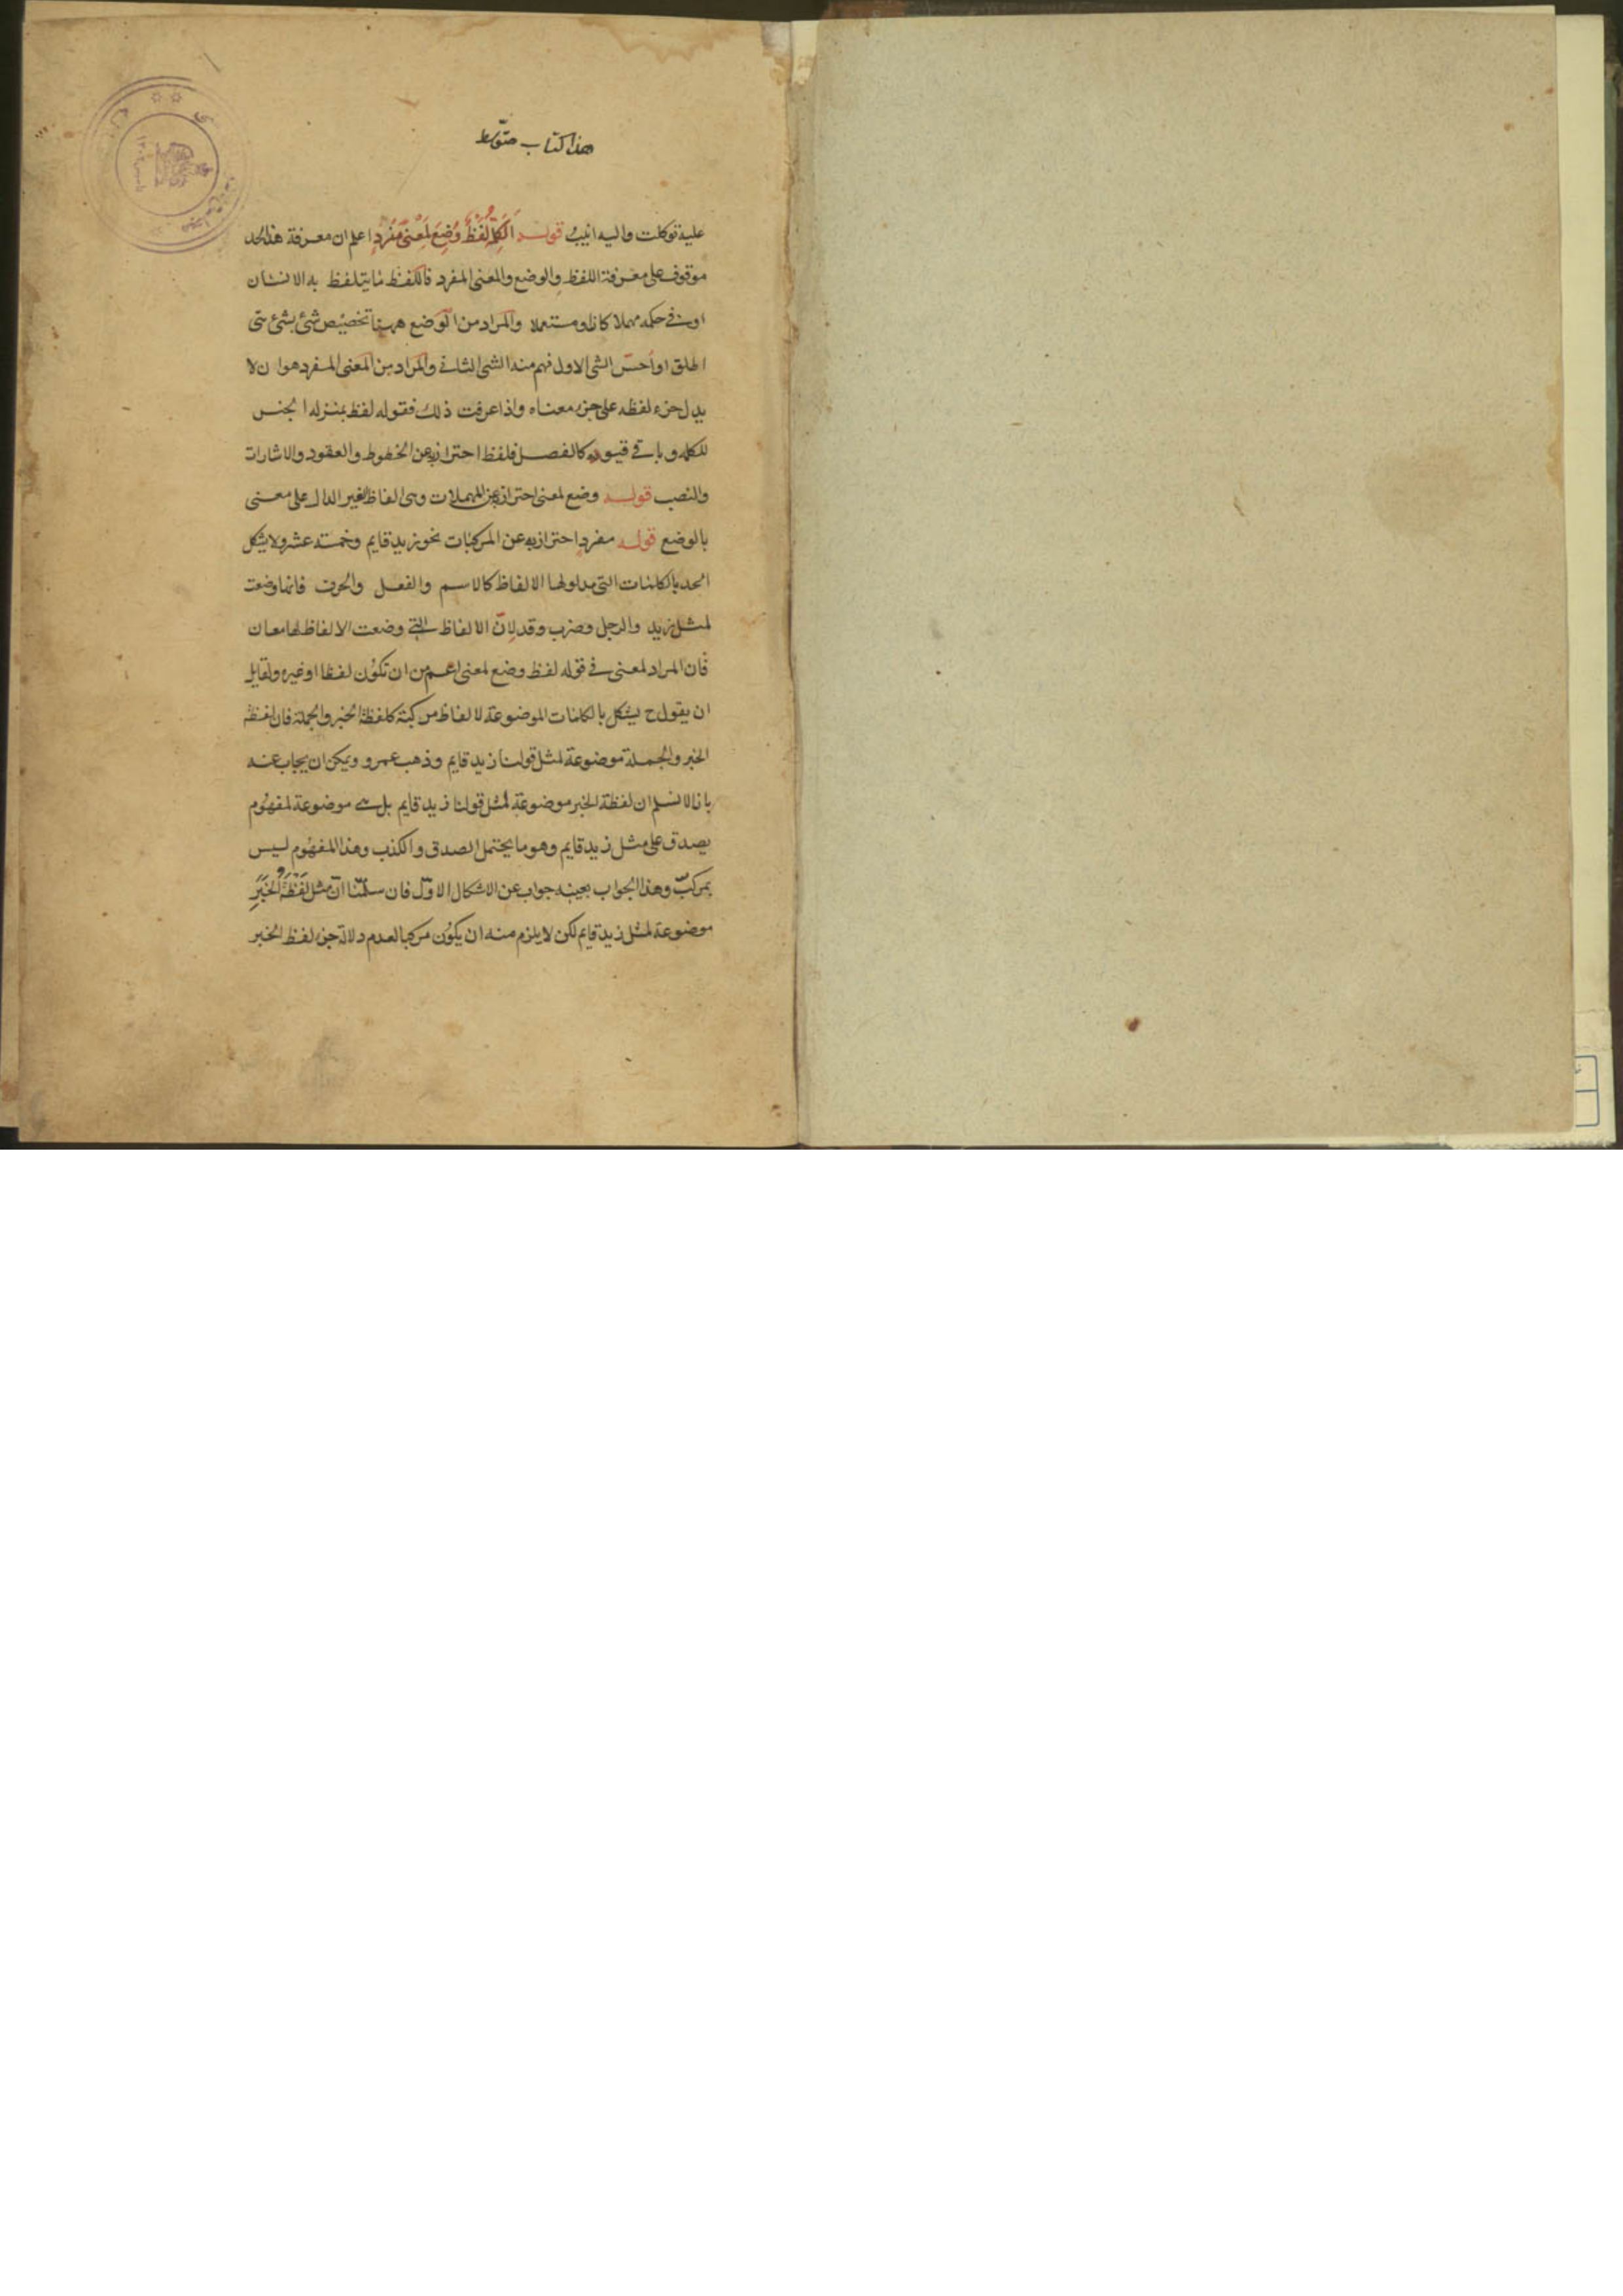 هذا كتاب متوسط
عليه توكلت واليه انيب قوله اَلْكَلِمَةُ لَفْظٌ وُضِعَ لِمَعْنًى مُفْرَدٍ اعلم ان معرفة هذا الحد
موقوف على معرفة اللفظ والوضع والمعنى المفرد فاللفظ ما يتلفظ به الانسان
او فى حكمه مهملا كان او مستعملا والمراد من الوضع ههنا تخصيص شئ بشئ متى
اطلق او احسّ الشئ الاول فهم منه الشئ الثانى والمراد من المعنى المفرد هو ان لا
يدل جزء لفظه على جزء معناه واذا عرفت ذلك فقوله لفظ بمنزله الجنس
للكلمه وباقى قيوده كالفصل فلفظ احتراز به عن الخطوط والعقود والاشارات
والنصب قوله وضع لمعنى احتراز به عن المهملات وهى الفاظ الغير الدال على معنى
بالوضع قوله مفرد احتراز به عن المركبات نحو زيد قايم وخمسة عشر ولا يشكل
الحد بالكلمات التى مدلولها الالفاظ كالاسم والفعل والحرف فانها وضعت
لمثل زيد والرجل وضرب وقد لانّ الالفاظ التى وضعت الالفاظ لها معان
فان المراد لمعنى فى قوله لفظ وضع لمعنى اعم من ان تكون لفظا او غيره ولقايل
ان يقول ح يشكل بالكلمات الموضوعة لالفاظ مركبة كلفظة الخبر والجملة فان لفظة
الخبر والجملة موضوعة لمثل قولنا زيد قايم وذهب عمرو ويمكن ان يجاب عنه
بانا لا نسلم ان لفظة الخبر موضوعة لمثل قولنا زيد قايم بل هى موضوعة لمفهوم
يصدق على مثل زيد قايم وهو ما يحتمل الصدق والكذب وهذا المفهوم ليس
بمركبّ وهذا الجواب بعينه جواب عن الاشكال الاوّل فان سلّمنا انّ مثل لَفْظَةُ الْخَبَرِ
موضوعة لمثل زيد قايم لكن لا يلزم منه ان يكون مركبا لعدم دلالة جزء لفظ الخبر